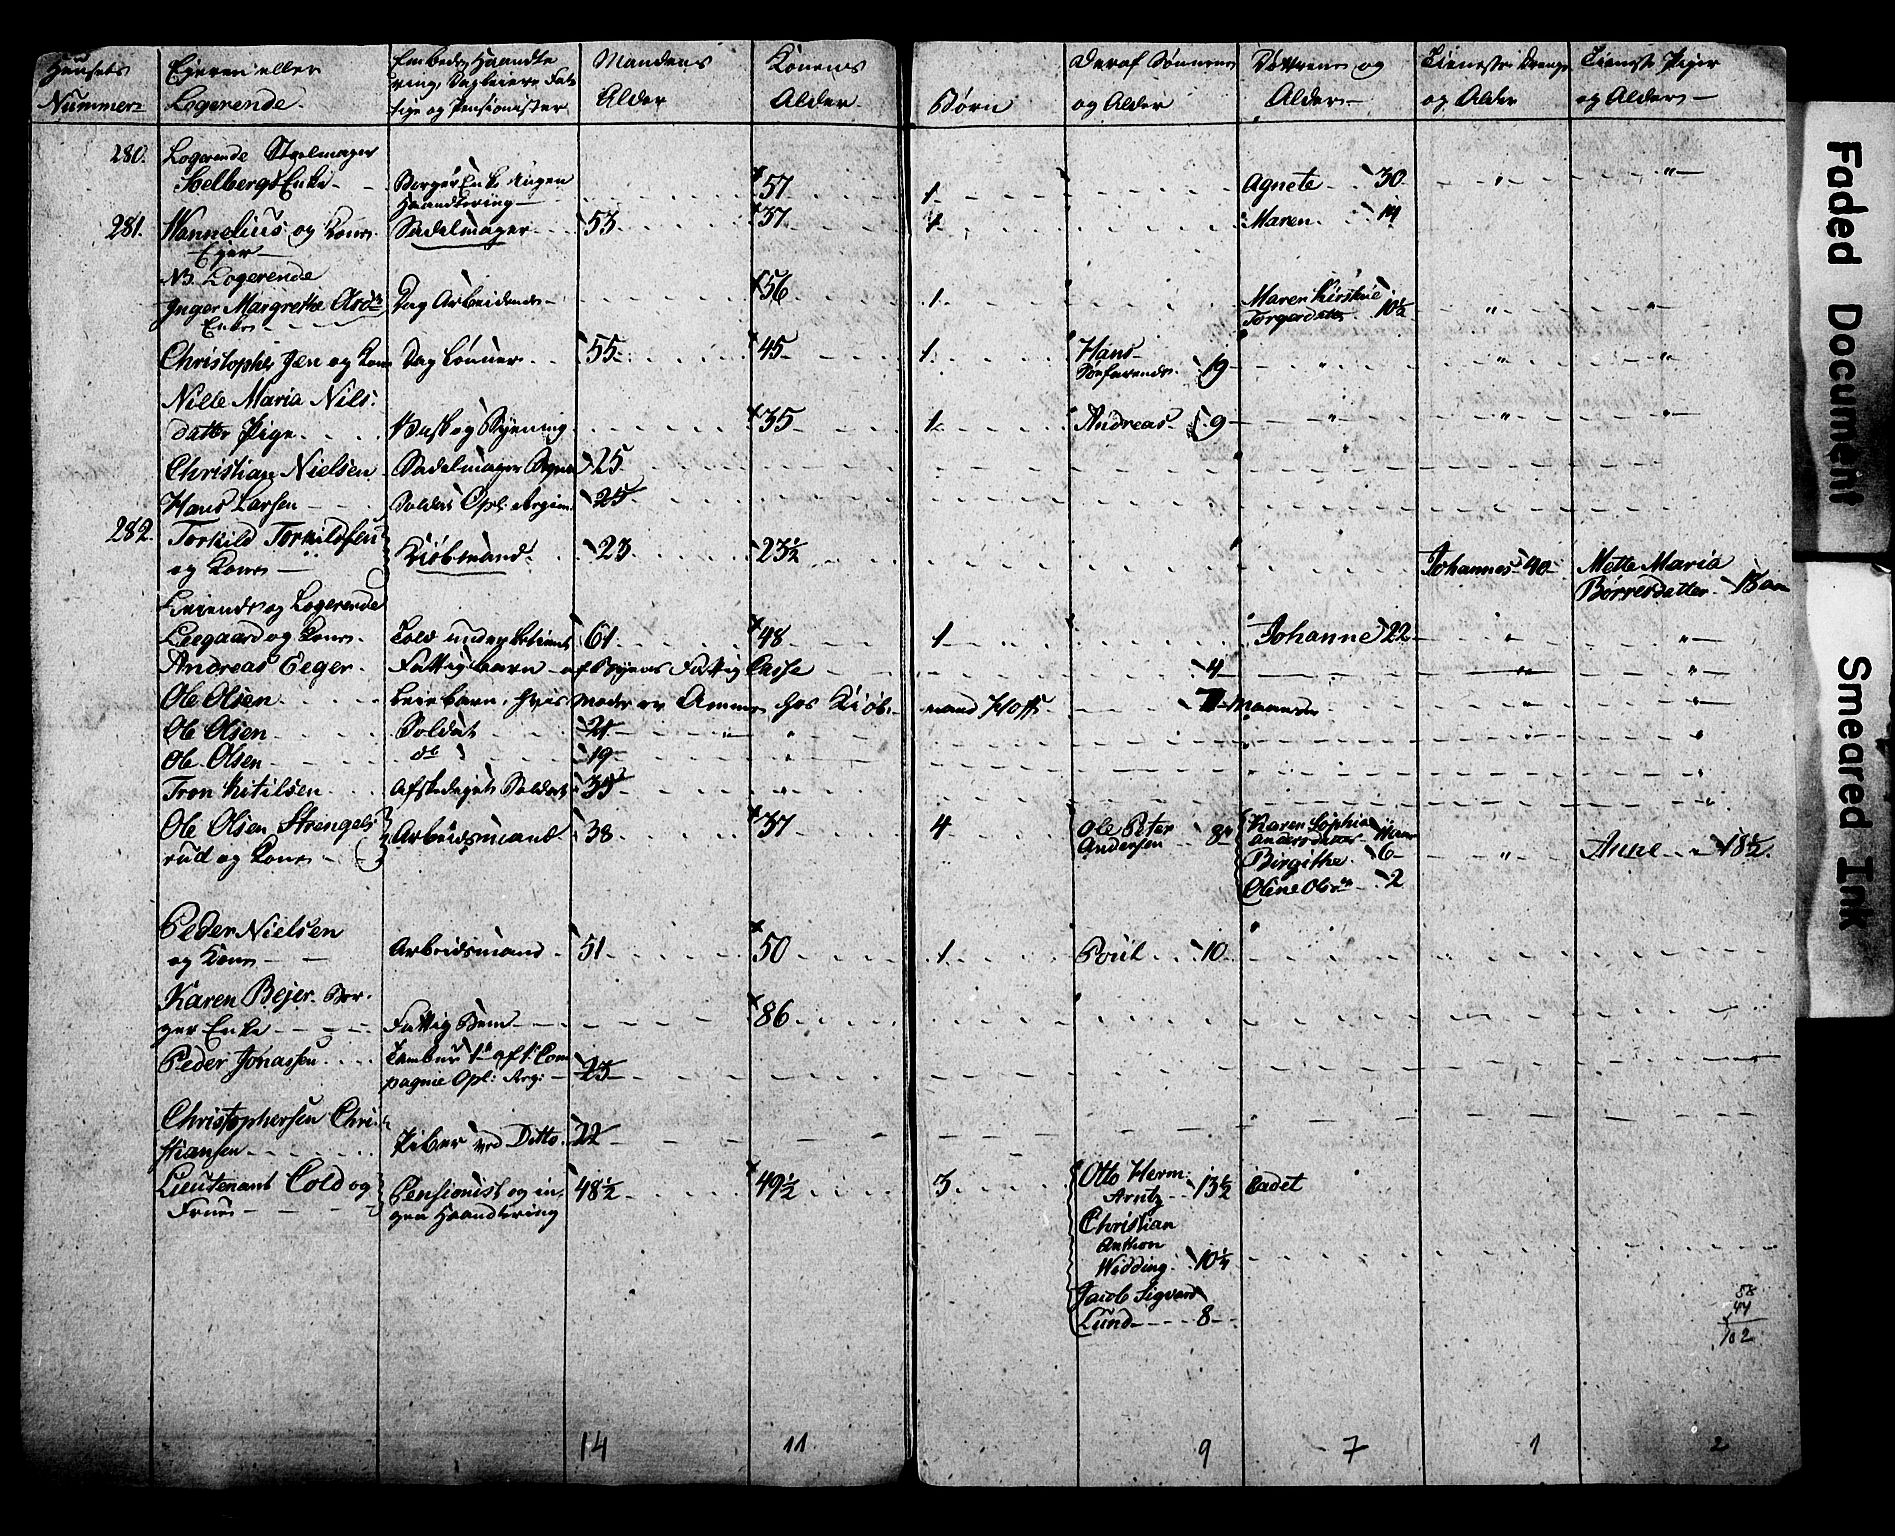 Huusets Nummer | Ejeren eller Logerende | Embede, Haandtering, Dagleiere Fattige og Pensionister | Mandens Alder | Konens Alder | Børn | Deraf Sønnene og Alder | Døttrene og Alder | Tieneste Drenge og Alder | Tieneste Piger og Alder
280. Logerende Stolmager
Solbergs Enke | Borger Enke Ingen Haandtering | 57 | 1 | Agnete 30
281. Wannelius og Kone Ejer | Sadelmager | 53 | 37 | 1 | Maren 14
NB. Logerende
Inger Margrethe Enke | Dag Arbeidende | 56 | 1 | Maren Kirstine Torgersdatter 10½
Christopher Jen og Kone | Dag Lønner | 55 | 45 | 1 | Hans Søefarende 19
Nille Maria Nilsdatter Pige | Vask og Syening | 35 | 1 | Andreas 9
Christian Nielsen | Sadelmager | 25
Hans Larsen | Soldat Opl: Regim. | 25
282. Torkild Torkildsen og Kone | Kiøbmand | 23 | 23½ | Johannes 40 | Mette Maria Børresdatter
Leiende og Logerende
Liegaard og Kone | Told underbetient | 61 | 48 | 1 | Johanne 22
Andreas Eeger | Fattig barn af Byens Fattig Casse | 4
Ole Olsen | Leiebarn, hvis Moder er Amme hos Kiøbmand Hoff | 7 Maaneder
Ole Olsen | Soldat | 21
Ole Olsen | do | 19
Tron Kitilsen | Afskediget Soldat | 35
Ole Olsen Strengelsrud og Kone | Arbeidsmand | 38 | 37 | 4 | Ole Peter Andersen 8 | Karen Sophia Andersdatter 11 aar
Birgithe 6 | Anne 18½
Oline 2
Peder Nielsen og Kone | Arbeidsmand | 51 | 50 | 1 | Poul 10
Karen Bejer Borger Enke | Fattig Lem | 86
Peder Jonassen | Tambur af Compagnie Opl: Reg: | 23
Christophersen Christiansen | Piber ved Ditto | 22
Lieutenant Cold og Frue | Pensionist og ingen Haandtering | 48½ | 49½ | 3 | Otto Herm: Arntz 13½ Cadet
Christian Anthon Widding 10¼
Jacob Sigvard Lund 8
58
44
102
14 | 11 | 9 | 7 | 1 | 2
Faded Document
Smeared Ink